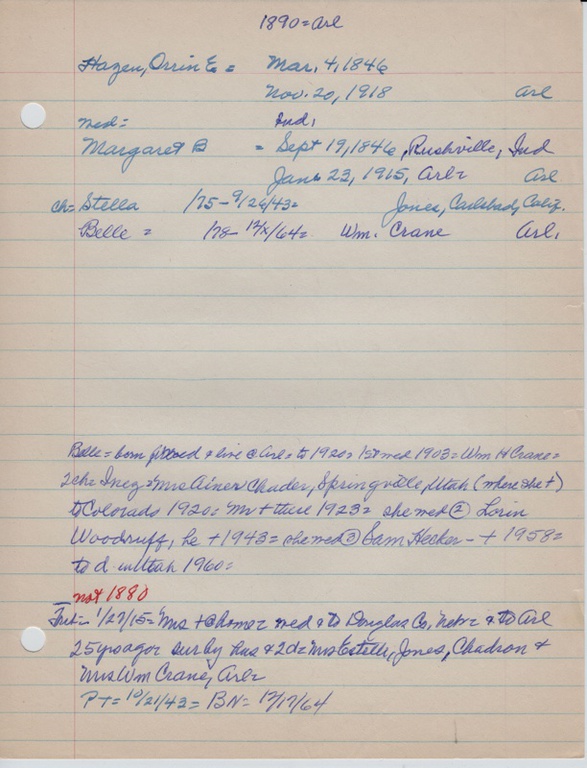 1890=Arl
Hazen, Orrin E. = Mar. 4, 1846
Nov. 20, 1918 Arl
med= Ind.
Margaret B = Sept 19, 1846, Rushville, Ind
Jan 23, 1915, Arl= Arl
ch= Stella /75-9/26/43= Jones, Carlsbad, Calif.
Belle = /78-12/x/64= Wm. Crane Arl.
Belle = born & live @ Arl= to 1920= 1st med 1903= Wm H Crane=
2ch= Inez= Mrs Ainer Chader, Springville, Utah (where she +)
to Colorado 1920= Mr + there 1923= she med ② Lorin
Woodruff, he + 1943= she med ③ Sam Hecker - + 1958=
to d in Utah 1960=
not 1880
1/27/15= Mrs + @ home= med & to Douglas Co, Nebr & to Arl
25 yrs ago= sur by hus & 2d= Mrs Estelle Jones, Chadron &
Mrs Wm Crane, Arl=
PT= 10/21/43= BN= 12/17/64